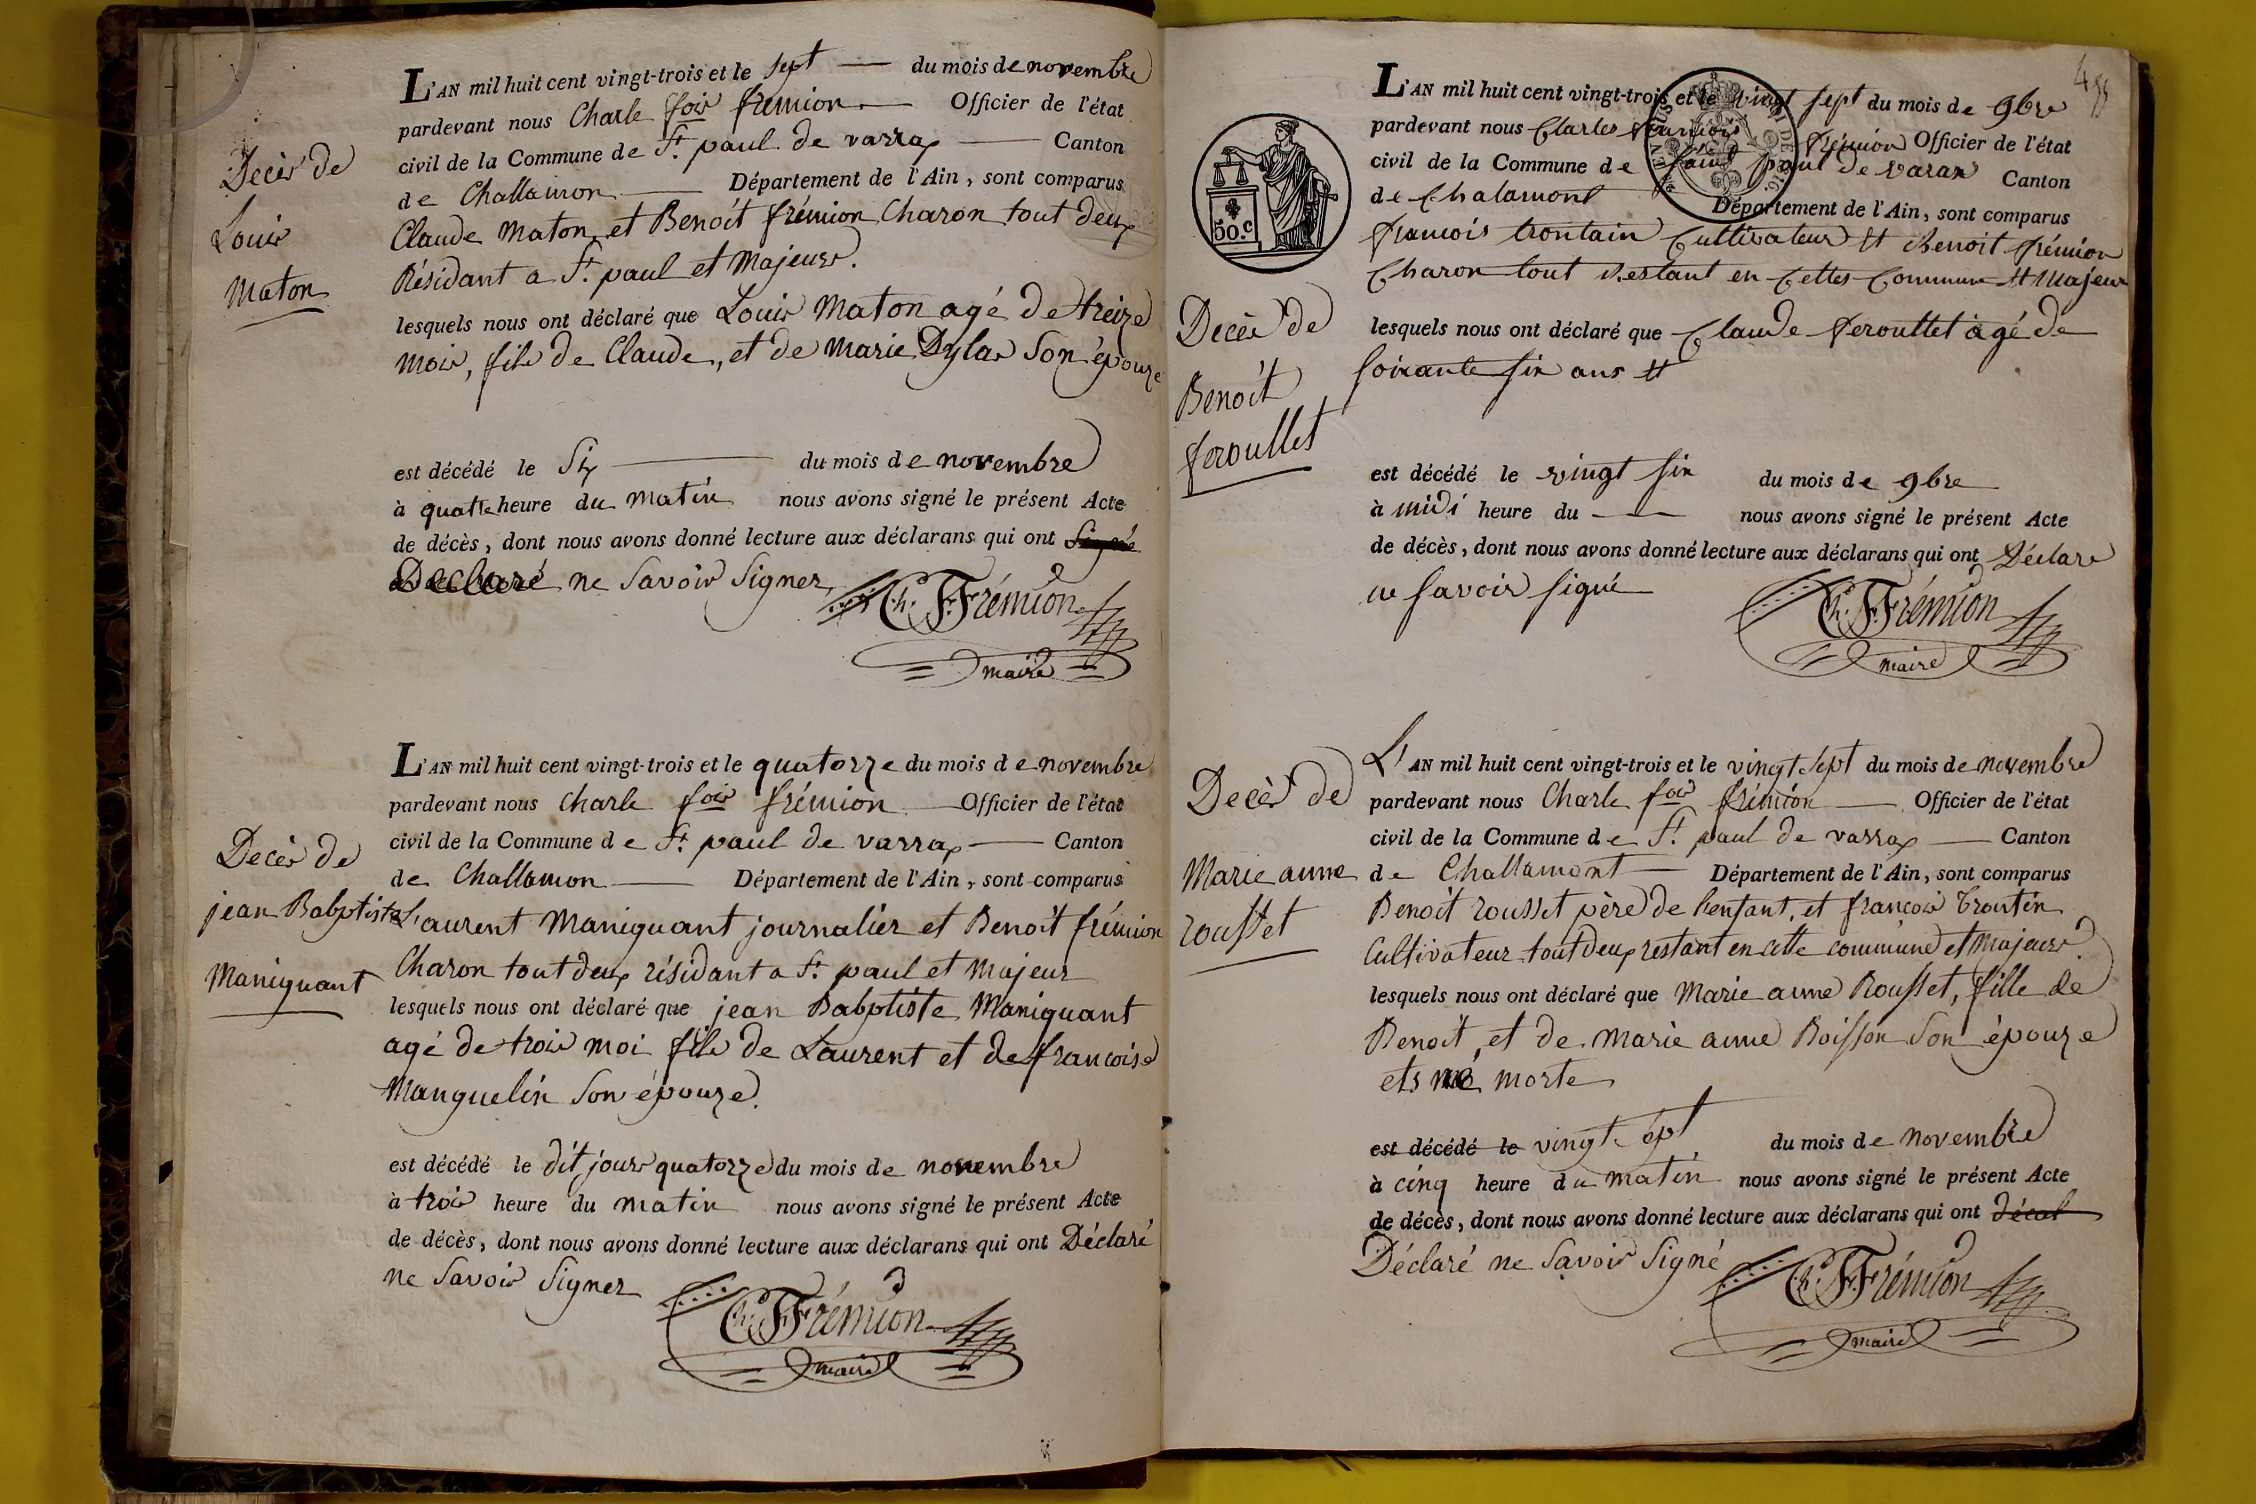 L'AN mil huit cent vingt-trois et le sept du mois de novembre
pardevant nous Charle fois frémion Officier de l'état
civil de la Commune de St. paul de varrax Canton
de Challamon Département de l'Ain, sont comparus
Claude Maton et Benoit frémion Charon tout deux
Résidant a St. paul et Majeurs.
lesquels nous ont déclaré que Louis Maton agé de treize
mois, fils de Claude, et de Marie Dylas Son épouze
est décédé le Six du mois de novembre
à quatre heure du matin nous avons signé le présent Acte
de décès, dont nous avons donné lecture aux déclarans qui ont Signé
Declaré ne Savoir Signer
Ch. F. Frémion
maire
Decès de
Louis
Maton
L'AN mil huit cent vingt-trois et le quatorze du mois de novembre
pardevant nous Charle fois frémion Officier de l'état
civil de la Commune de St. paul de varrax Canton
de Challamon Département de l'Ain, sont comparus
Laurent Maniquant journalier et Benoit frémion
Charon tout deux résidant a St. paul et Majeur
lesquels nous ont déclaré que jean Babptiste Maniquant
agé de trois moi fils de Laurent et de francoise
Manguelin Son épouze.
est décédé le dit jour quatorze du mois de novembre
à trois heure du matin nous avons signé le présent Acte
de décès, dont nous avons donné lecture aux déclarans qui ont Déclaré
ne Savoir Signer
Ch. F. Frémion
maire
Decès de
jean Babptiste
Maniquant
L'AN mil huit cent vingt-trois et le vingt sept du mois de 9bre
pardevant nous Charles francois frémion Officier de l'état
civil de la Commune de saint paul de varax Canton
de Chalamont Département de l'Ain, sont comparus
francois trontain Cultivateur et Benoit frémion
Charon tout restant en Cettes Commune et Majeur
lesquels nous ont déclaré que Claude feroullet àgé de
soixante six ans et
est décédé le vingt six du mois de 9bre
à midi heure du nous avons signé le présent Acte
de décès, dont nous avons donné lecture aux déclarans qui ont Déclare
ne savoir signé
Ch. F. Frémion
maire
50.c
Decès de
Benoit
feroullet
L'AN mil huit cent vingt-trois et le vingt Sept du mois de novembre
pardevant nous Charle fois frémion Officier de l'état
civil de la Commune de St. paul de varrax Canton
de Challamont Département de l'Ain, sont comparus
Benoit rousset père de l'enfant, et francois Troutin
Cultivateur tout deux restant en cette commune et Majeurs
lesquels nous ont déclaré que Marie anne Rousset, fille de
Benoit, et de Marie anne Boisson Son épouze
ets né morte
est décédé le vingt sept du mois de novembre
à cinq heure du matin nous avons signé le présent Acte
de décès, dont nous avons donné lecture aux déclarans qui ont décal
Déclaré ne Savoir Signé
Ch. F. Frémion
maire
Decès de
Marie anne
rousset